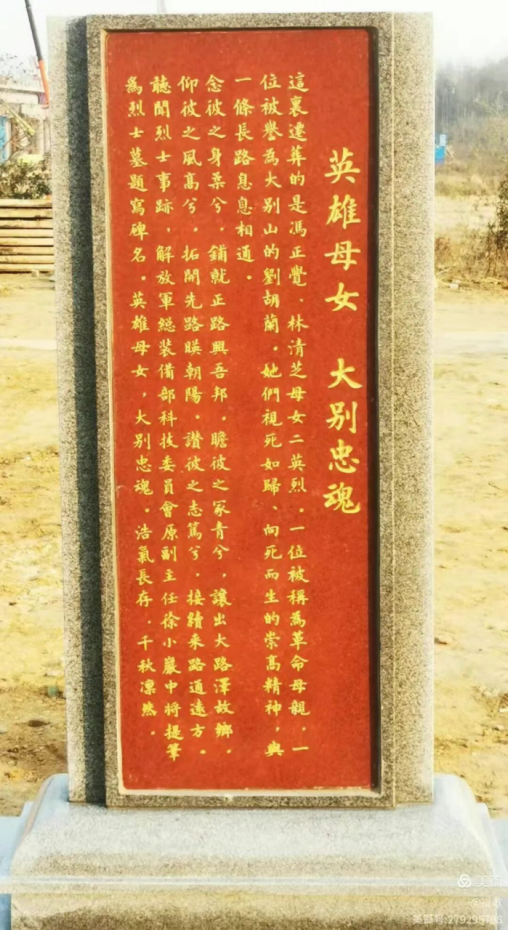 英雄母女　大别忠魂
這裏遷葬的是馮正覺、林清芝母女二英烈。一位被稱為革命母親，一
位被譽為大别山的劉胡蘭。她們視死如歸、向死而生的崇高精神，與
一條長路息息相通。
念彼之身柔兮，鋪就正路興吾邦。瞻彼之冢青兮，讓出大路澤故鄉。
仰彼之風高兮，拓開先路暎朝陽。讚彼之志篤兮，接續来路通遠方。
聽聞烈士事跡，解放軍總装備部科技委員會原副主任徐小巖中将提筆
為烈士墓題寫碑名。英雄母女，大别忠魂。浩氣長存，千秋凛然。
美篇号:279295786